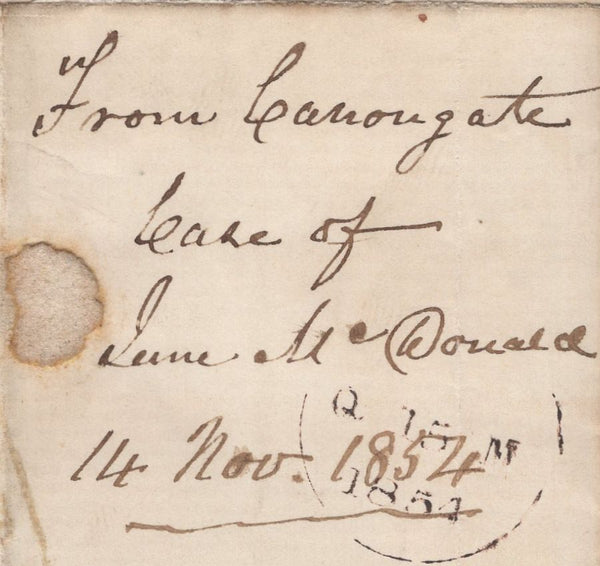 From Canongate
Case of
Jane Mc Donald
14 Nov. 1854
Q 15 M
1854